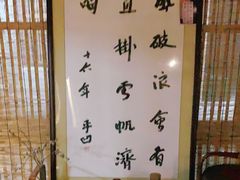 風破浪會有
直掛雲帆濟
十六年 平凹